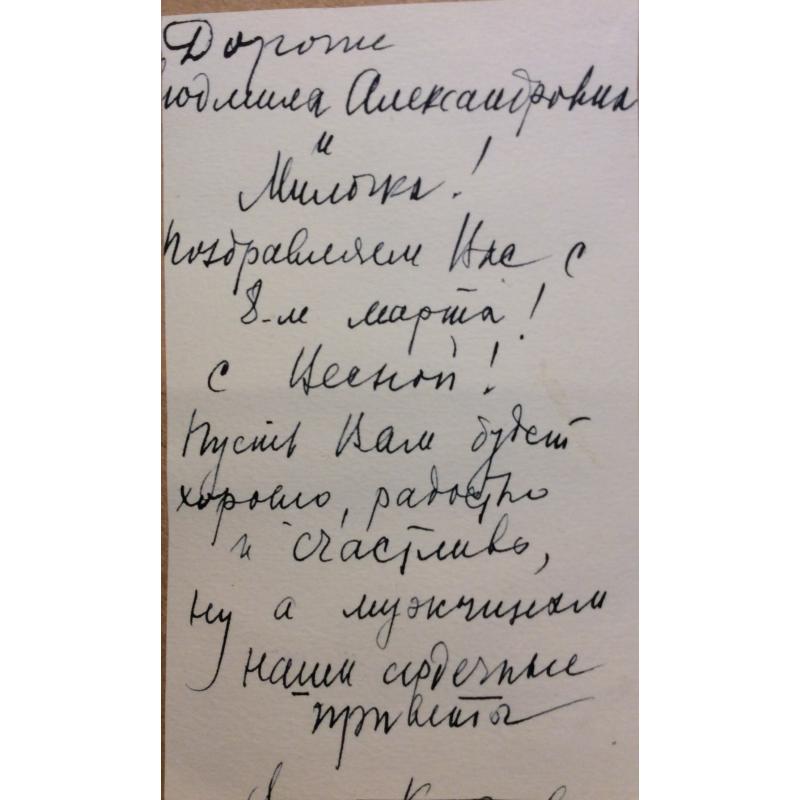 Дорогие
Людмила Александровна
и
Милочка!
Поздравляем Вас с
8-м марта!
с Весной!
Пусть Вам будет
хорошо, радостно
и счастливо,
ну а мужчинам
наши сердечные
приветы